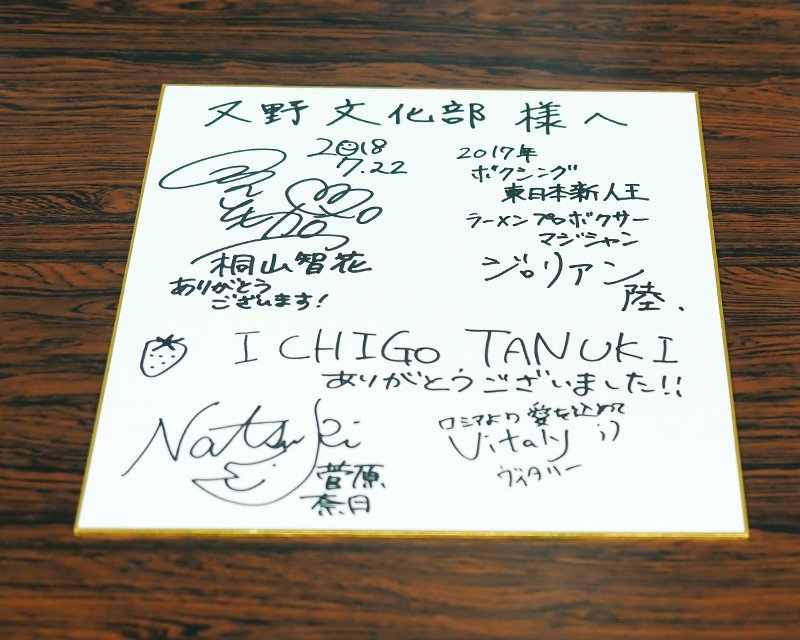 又野文化部様へ
2018
7.22
桐山智花
ありがとう
ございます!
2017年
ボクシング
東日本新人王
ラーメンプロボクサー
マジシャン
ジロリアン
陸.
ICHIGo TANUKI
ありがとうございました!!
Natsuki
菅原
奈月
ロシアより愛を込めて
Vitaly :)
ヴィタリー